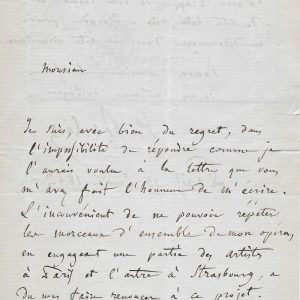 Monsieur
Je suis, avec bien du regret, dans
l'impossibilité de répondre comme je
l'aurais voulu à la lettre que vous
m'avez fait l'honneur de m'écrire.
L'inconvénient de ne pouvoir répéter
les morceaux d'ensemble de mon opéra,
en engageant une partie des artistes
à Paris et l'autre à Strasbourg, a
du me faire renoncer à ce projet.